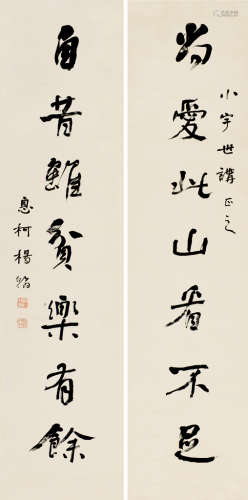 尚愛此山看不足
小宇世講正之
自昔雖貧樂有餘
惠柯楊